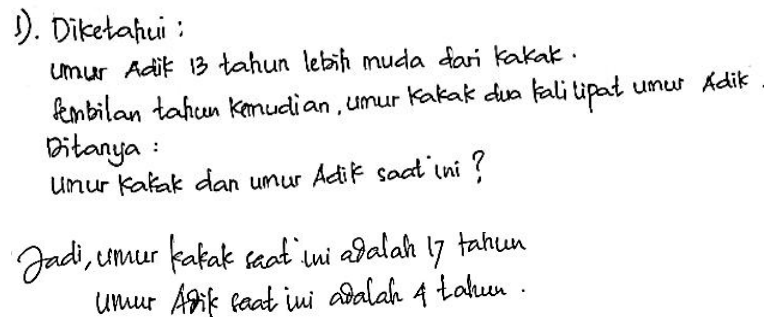 1). Diketahui :
umur Adik 13 tahun lebih muda dari kakak.
Sembilan tahun kemudian, umur kakak dua kali lipat umur Adik.
Ditanya :
umur kakak dan umur Adik saat ini ?
Jadi, umur kakak saat ini adalah 17 tahun
umur Adik saat ini adalah 4 tahun.